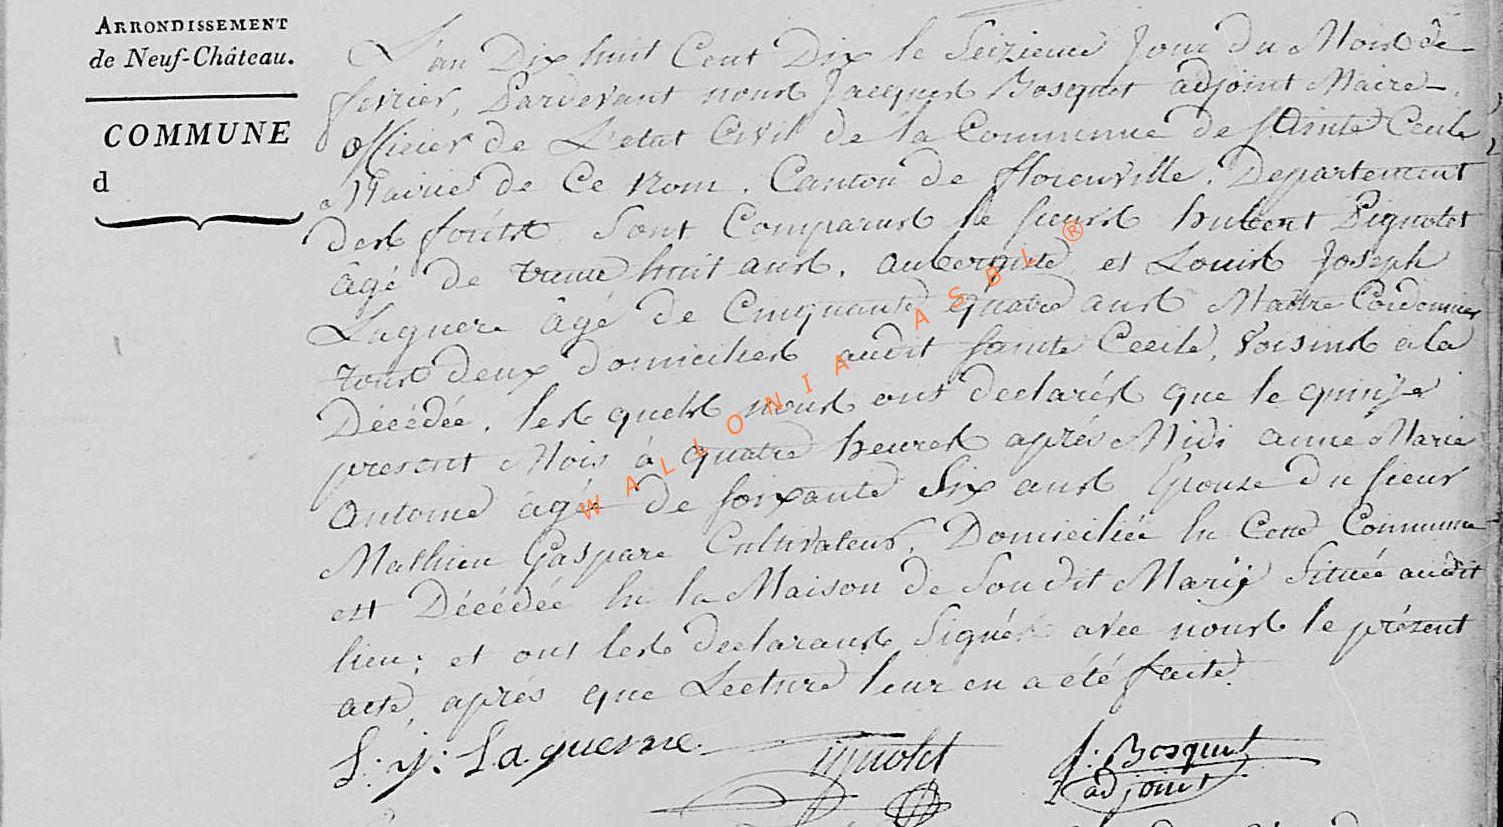 ARRONDISSEMENT
de Neuf-Château.
COMMUNE
d
L'an Dix huit Cent Dix le Seizieme Jour du Mois de
fevrier, Pardevant nous Jacques Bosquet adjoint Maire
officier de L'etat Civil de la Commune de Sainte Cecile
Mairie de Ce Nom, Canton de florenville, Departement
des foréts, Sont Comparus le sieurs hubert Pignolet
âgé de trente huit ans, aubergiste, et Louis Joseph
Laguerre âgé de Cinquante quatre ans Maitre Cordonnier
tous deux domiciliés audit Sainte Cecile, Voisins a la
Décédée, les quels nous ont declarés que le quinze
present Mois à quatre heures aprés Midi anne Marie
Antoine agée de soixante Six ans Epouse du sieur
Mathieu Gaspare Cultivateur, Domiciliée En Cette Commune
est Décédée En la Maison de Son dit Mary Située audit
lieu; et ont les declarans Signés avec nous le présent
acte, aprés que Lecture leur en a été faite.
L: J: Laguerre.
Pignolet
J: Bosquet
adjoint
WALLONIA ASBL ®